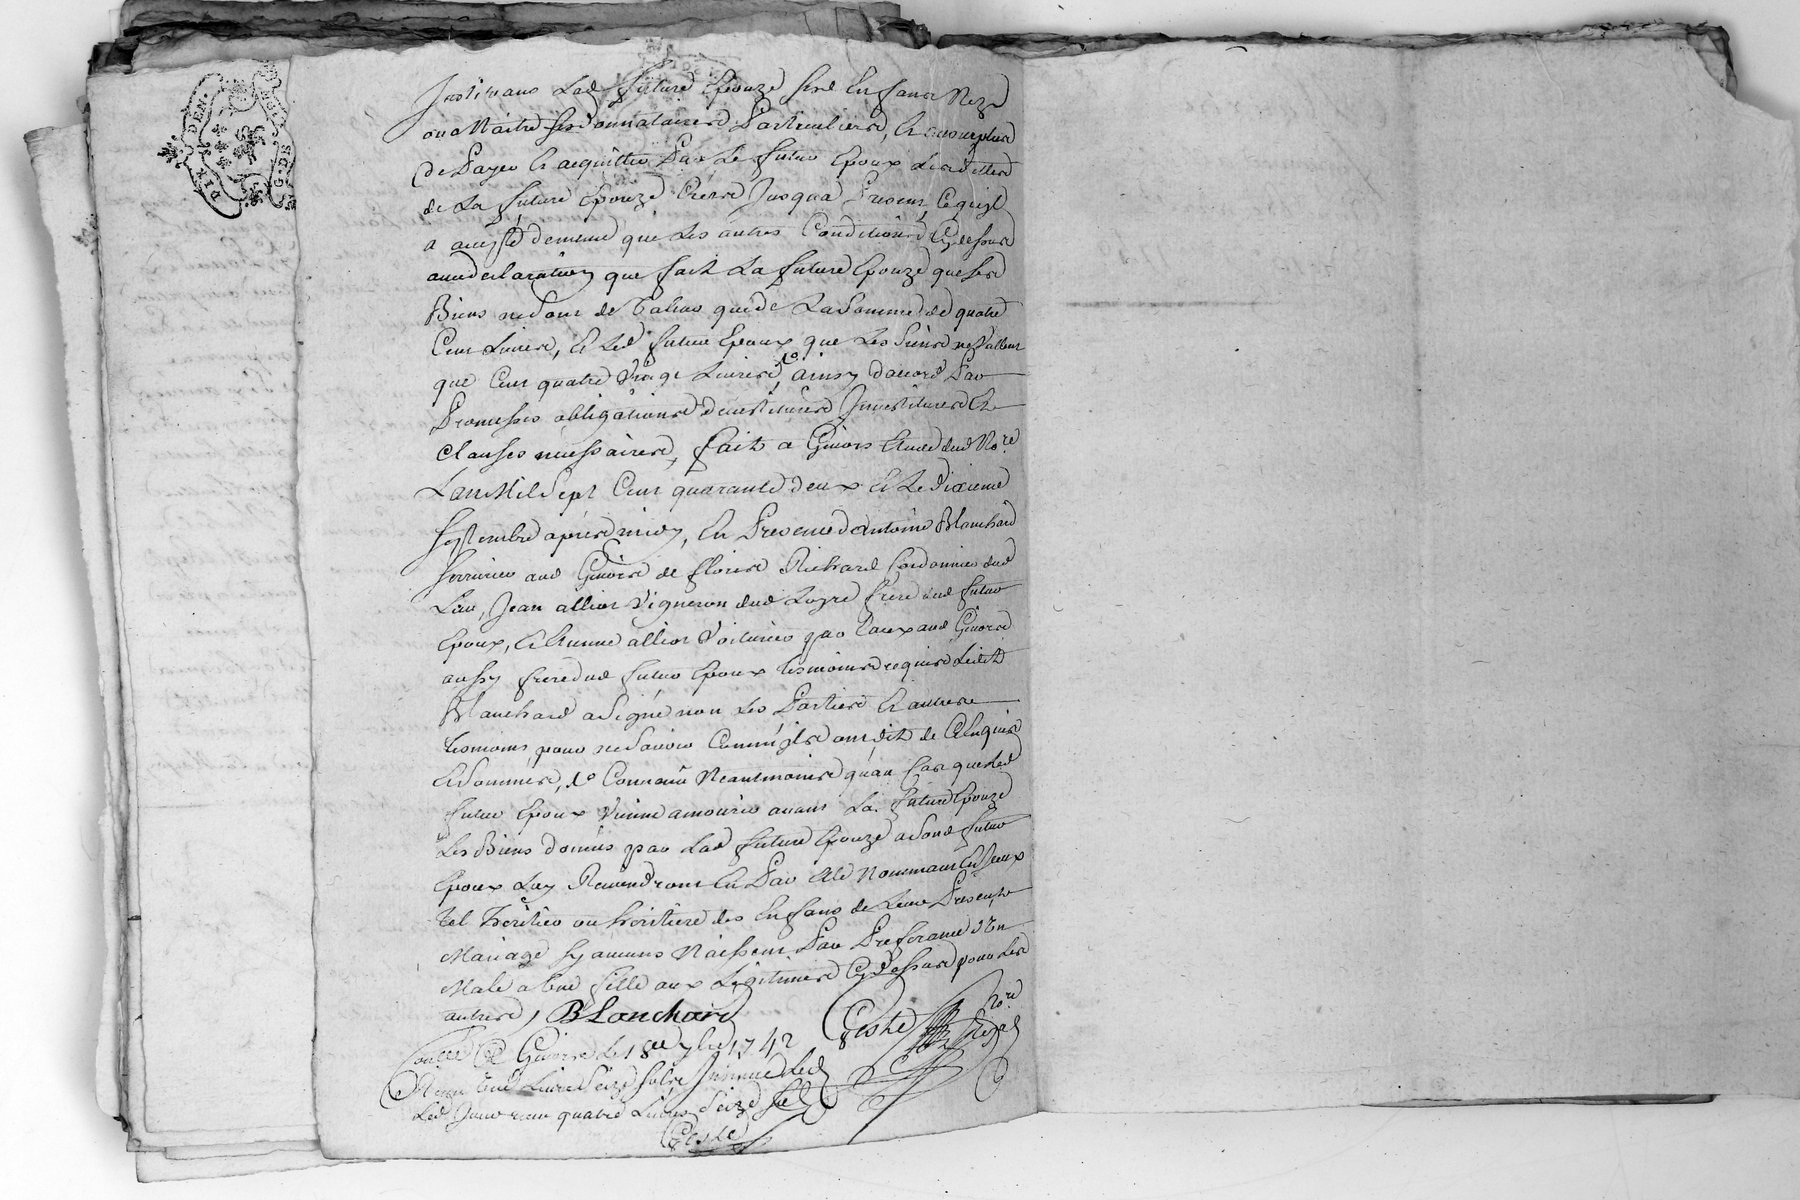 DEN.
G. DE
Instituant Lad future Epouze Ses Enfans Nez
ou a Naitre ses donnataires Particuliers, Et
de Payer Et acquitter Par Le futur Epoux Les dettes
de La future Epouze Créées Jusqua Present, Ce quil
a accepté de meme que Les autres Conditions Cy dessus
auec declaration que fait La future Epouze que ses
Biens ne sont de Valeur que de La somme de quatre
Cent Livres, Et Led futur Epoux que Les siens ne Vallent
que Cent quatre Vingt Livres, ainsy d'accord Par
Promesses obligations Investitures Et
Clauses necessaires, fait a Givors Etude dud No.re
L'an Mil Sept Cent quarante deux Et Le Dixieme
Septembre apres midy, En Presence d'Antoine Blanchard
Serrurier aud Givors de Richard Cordonnier dud
Lieu, Jean allior Vigneron dud Loyre frere dud futur
Epoux, Et Etienne allior Voiturier par Eaux aud Givors
aussy frere dud futur Epoux tesmoins requis Ledit
Blanchard a Signé non Les Parties Et autres
tesmoins pour ne Savoir Comme ils ont dit de Ce Enquis
Et Sommés, Convenu Neantmoins qu'au Cas que Led
futur Epoux Vienne a mourir avant La future Epouze
Les Biens donnés par Lad future Epouze a Sond futur
Epoux Luy Reviendront En Par Elle Nommant Un
tel heritier ou heritiere des Enfans de Leur Present
Mariage sy aucuns Naissent Par Preferance d'Un
Male a Une fille aux Legitimes Cy dessus pour Les
autres, Blanchard Geste No.re Royal
Con.lé a Givors Le 18e 7bre 1742
Recu une Livre Seize sols
Led Jour quatre Livres Seize sols
Geste